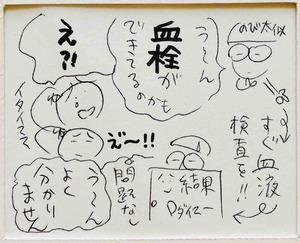 のび太似
すぐ血液
検査を!!
う～ん
血栓が
できてるのかも
え?!
イタイススス
結果
Dダイマー
問題なし
え゛～!!
う～ん
よく
分かり
ません